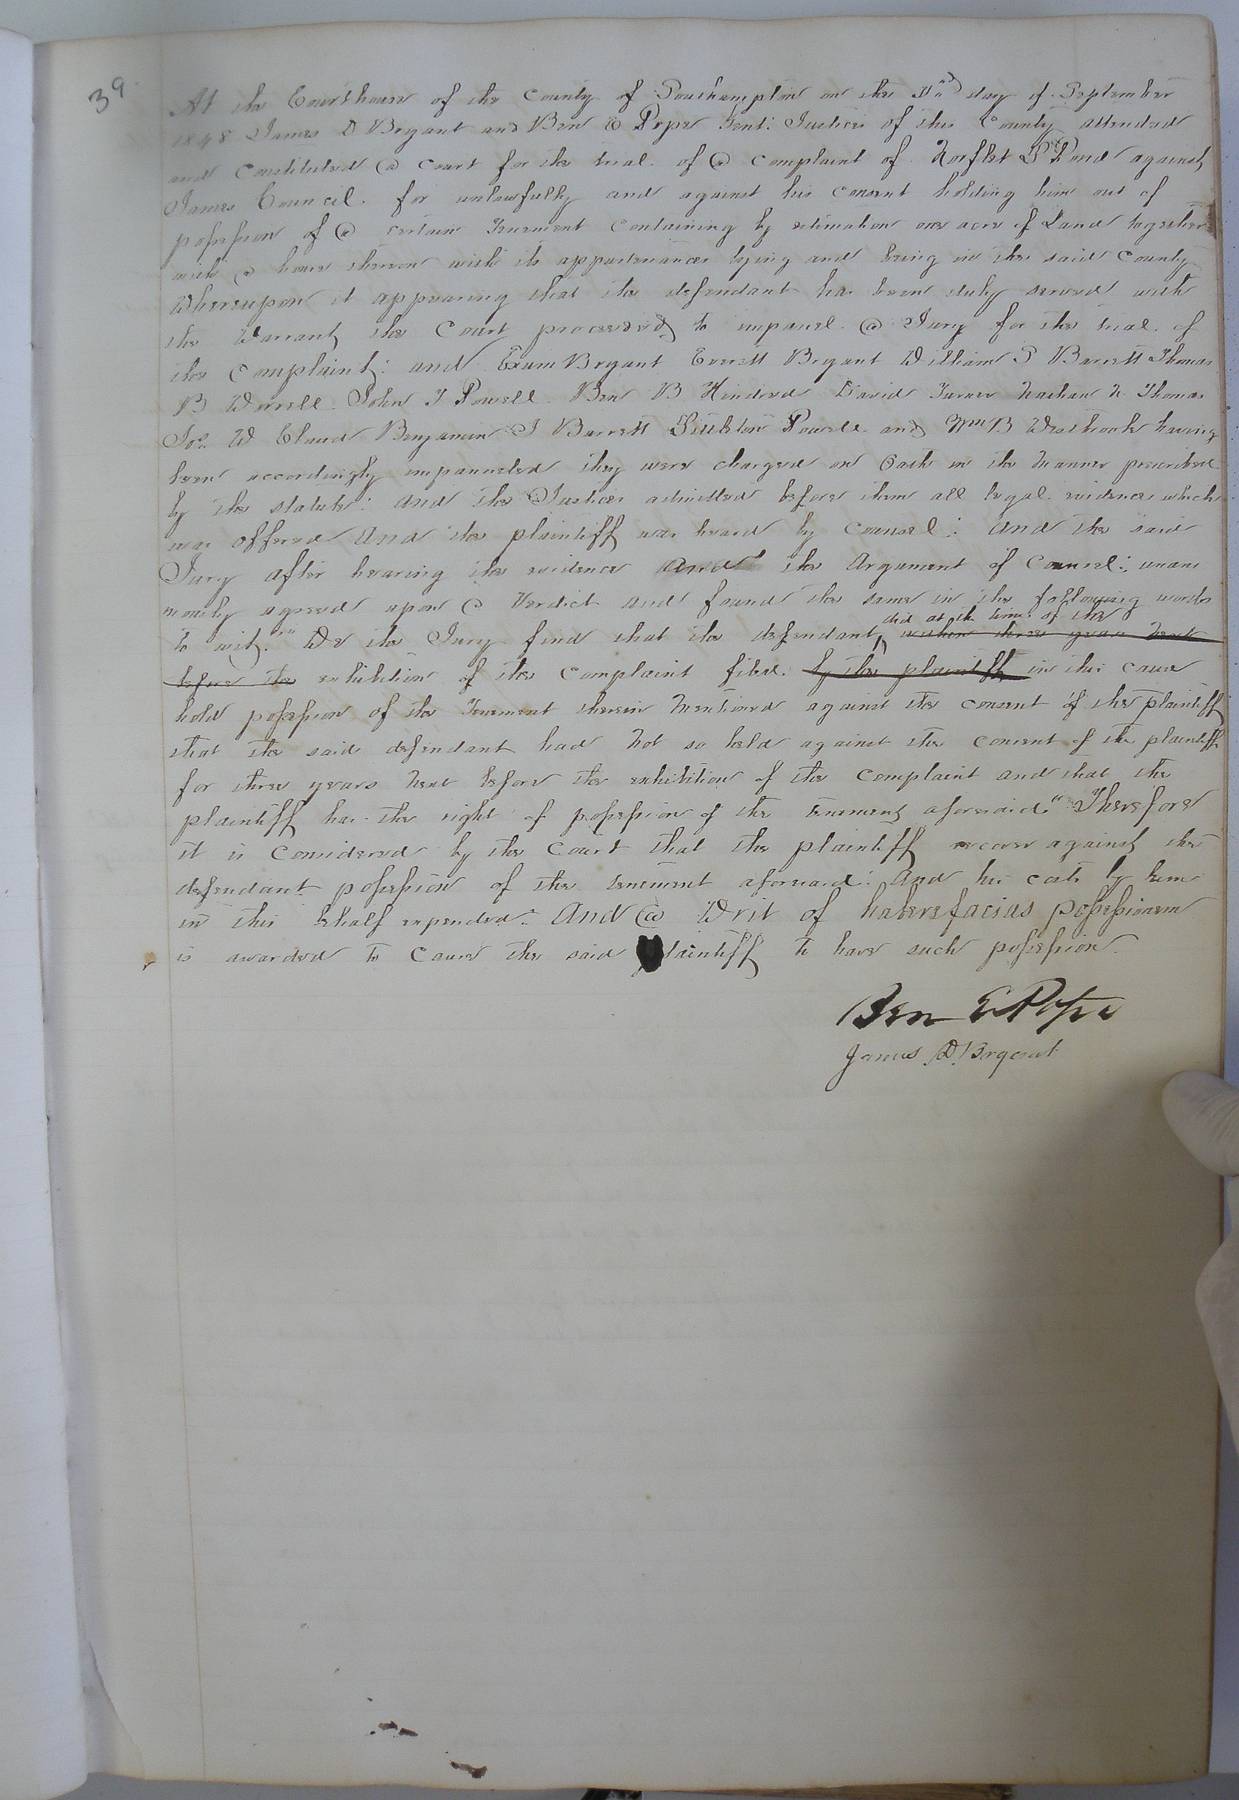 39
At the Courthouse of the County of Southampton on the day of September
1848 James D Bryant and Ben E Pope Gent: Justices of this County attended
and Constituted a court for the trial of a complaint of Norflet Pond against
James Council for unlawfully and against his consent holding him out of
possession of a certain Tenement Containing by estimation one acre of Land together
with a house thereon with its appurtenances lying and being in the said County
Whereupon it appearing that the defendant has been duly served with
the Warrant, the Court proceeded to impanel a Jury for the trial of
the Complaint: and Exum Bryant Everett Bryant William P Barrett Thomas
B Worrell John T Powell Ben B David Turner Nathan N Thomas
Jos. W Claud Benjamin J Barrett Littleton Powell and Wm B Westbrook having
been accordingly impanneled they were charged on Oath in the manner prescribed
by the statute: and the Justices admitted before them all legal evidence which
was offered And the plaintiff was heard by Counsel: And the said
Jury after hearing the evidence And the Argument of Counsel: unani
mously agreed upon a Verdict and found the same in the following words
did at the time of the
to wit, "We the Jury find that the defendant, within three years next
before the exhibition of the Complaint filed by the plaintiff in this cause
hold possession of the Tenement therein mentioned against the consent of the plaintiff
that the said defendant had not so held against the consent of the plaintiff
for three years next before the exhibition of the complaint and that the
plaintiff has the right of possession of the tenement aforesaid" Therefore
it is Considered by the Court that the plaintiff recover against the
defendant possession of the tenement aforesaid: And his costs by him
in this behalf expended. And a Writ of haberefacias possessionem
is awarded to Cause the said plaintiff to have such possession.
Ben E Pope
James D. Bryant